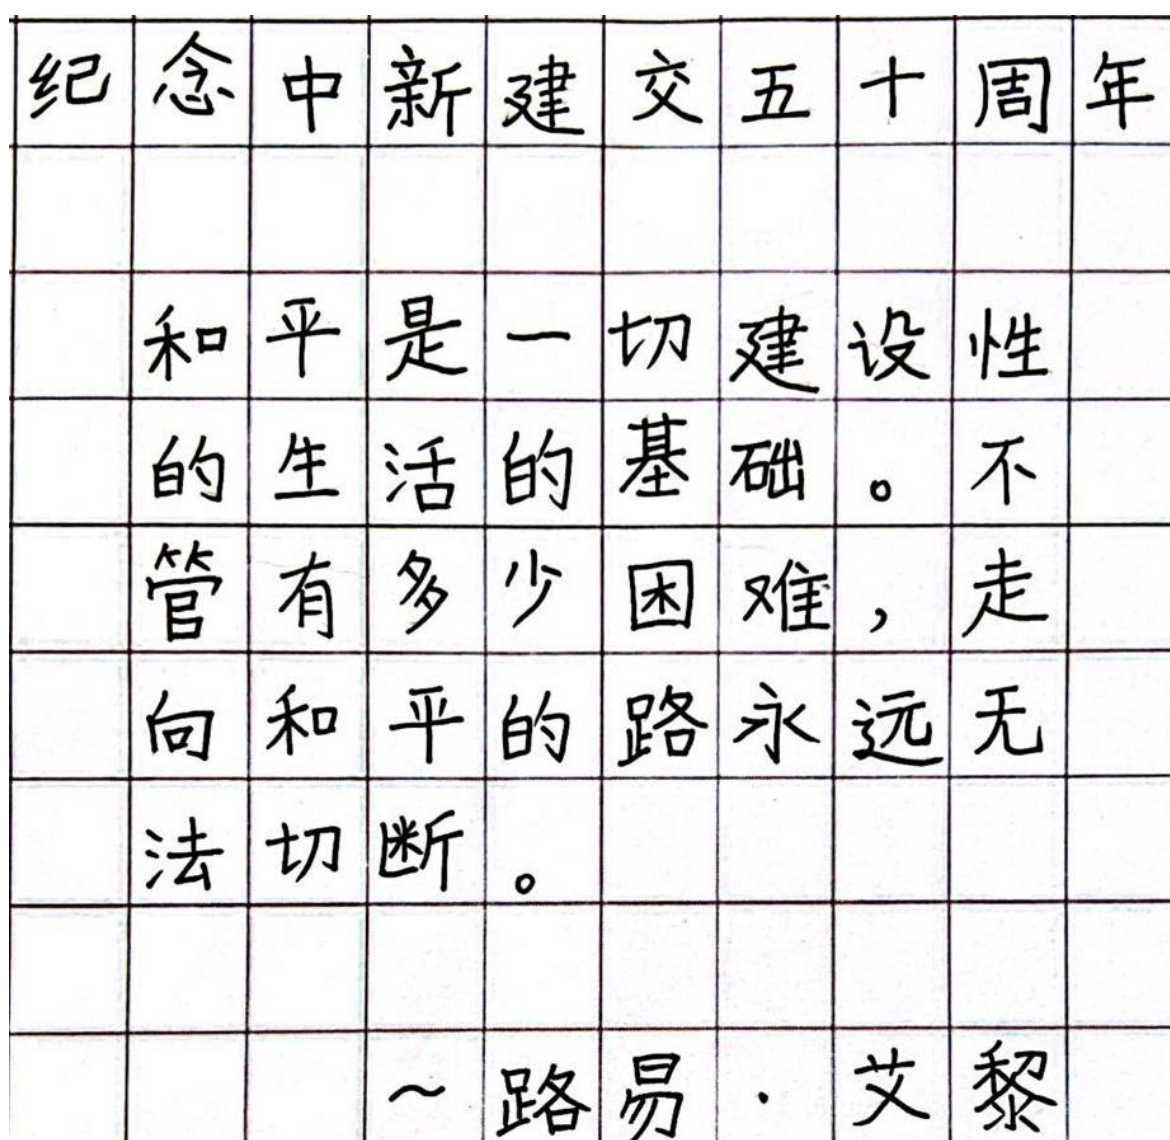 纪念中新建交五十周年
和平是一切建设性
的生活的基础。不
管有多少困难，走
向和平的路永远无
法切断。
~路易·艾黎